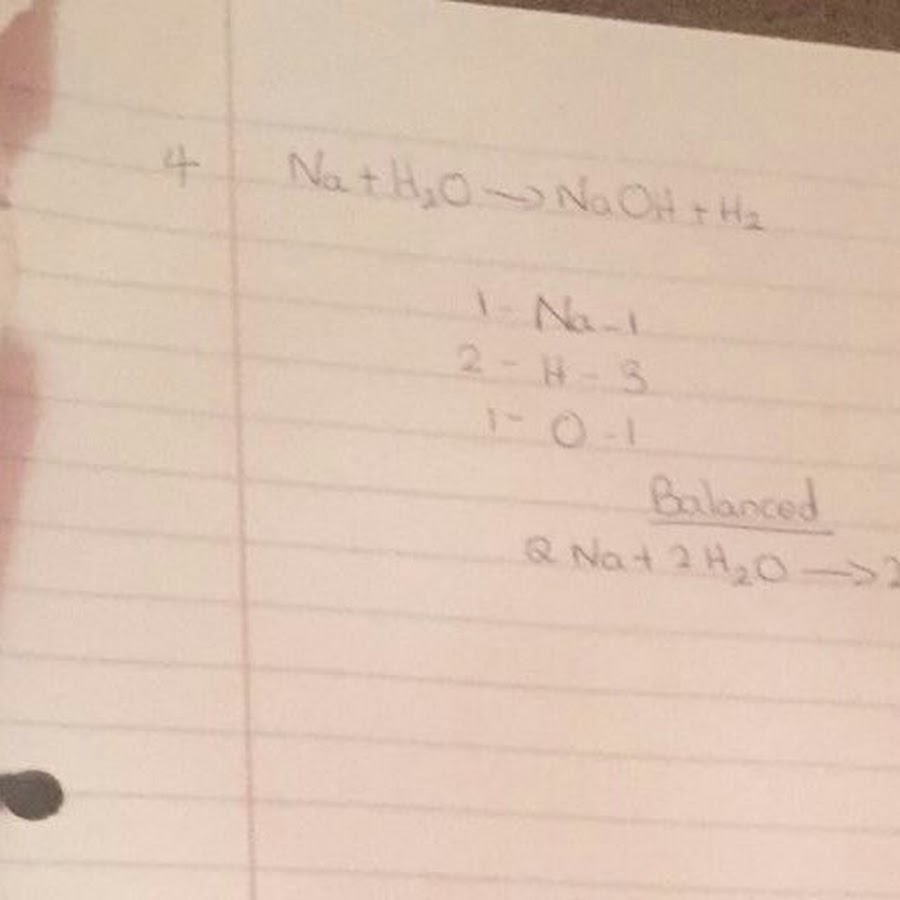 4 Na + H₂O → NaOH + H₂
1 - Na - 1
2 - H - 3
1 - O - 1
Balanced
2 Na + 2 H₂O → 2